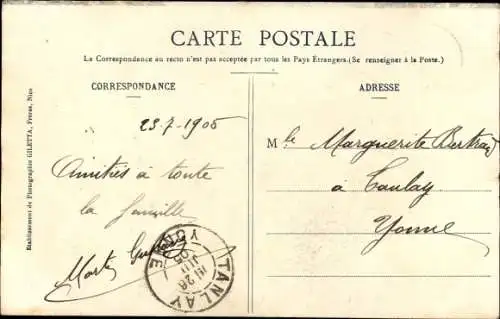 CARTE POSTALE
La Correspondance au recto n'est pas acceptée par tous les Pays Etrangers. (Se renseigner à la Poste.)
CORRESPONDANCE
23-7-1905
Amitiés à toute
la famille
ADRESSE
Mlle Marguerite Bertrand
à Tanlay
Yonne
TANLAY
YONNE
26
JUIL
05
Etablissement de Photographie GILETTA, Frères, Nice